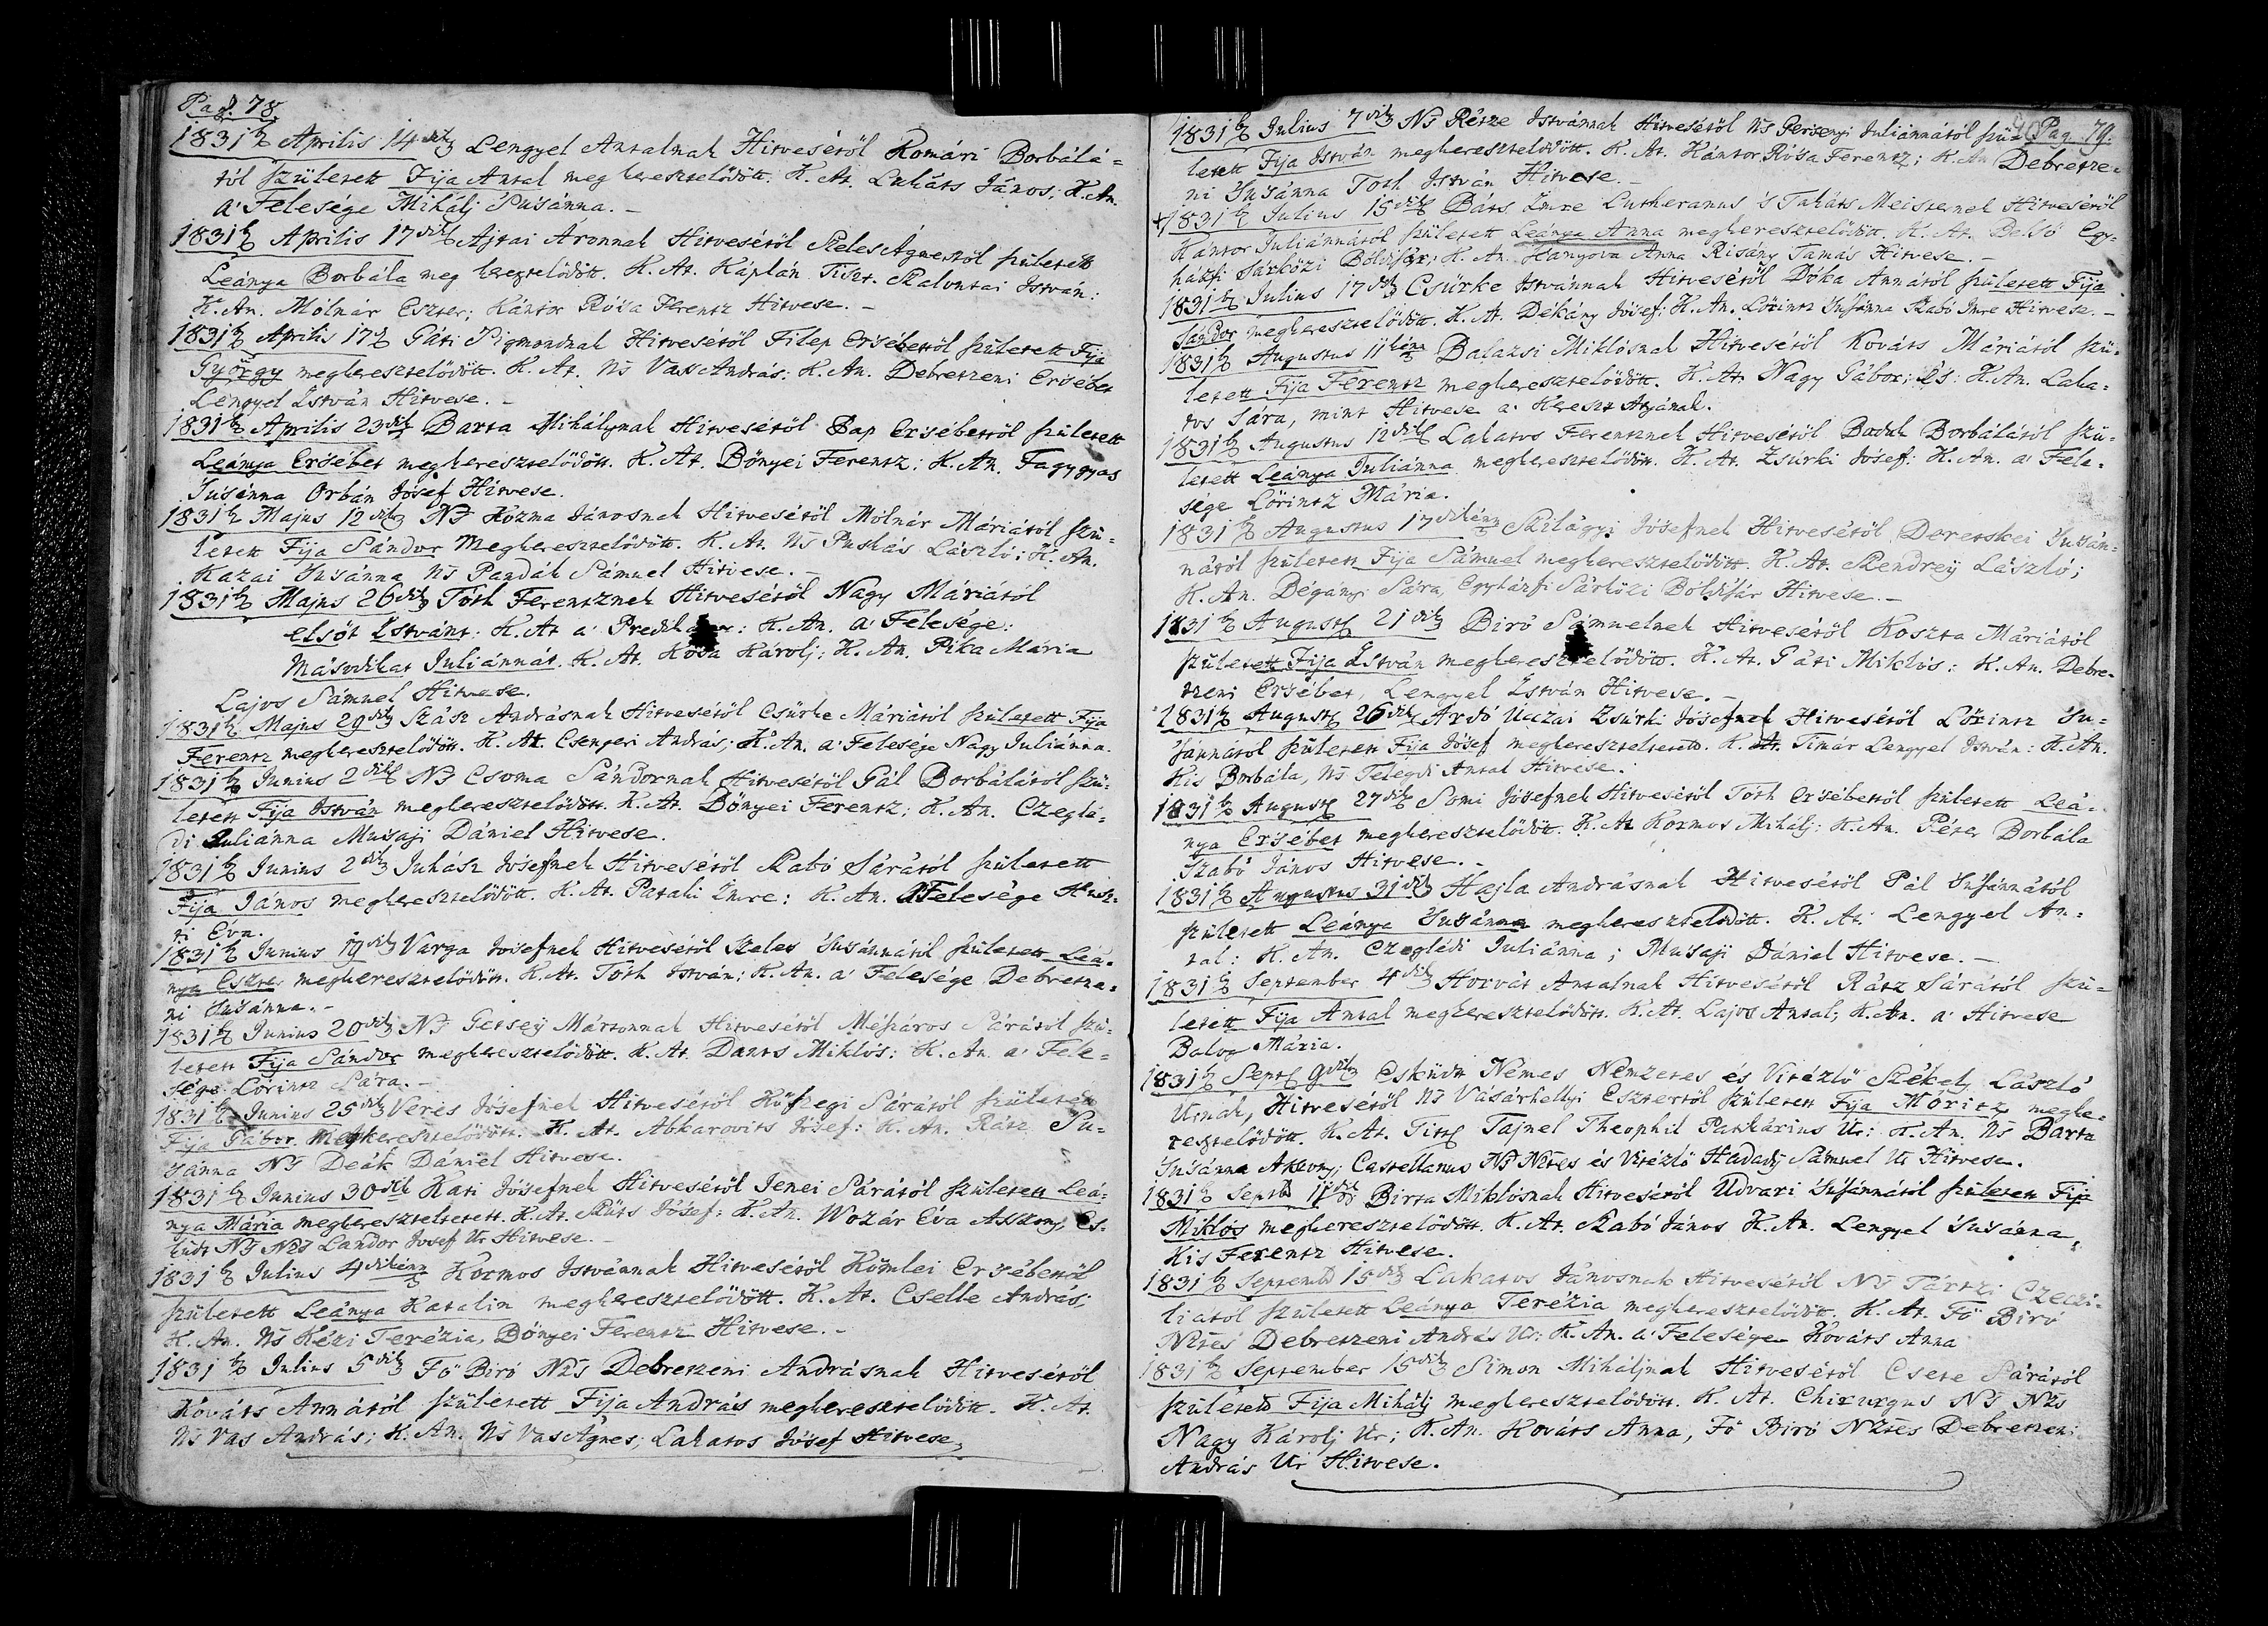 Pag. 78.
1831b Aprilis 14dik Lengyel Antalnak Hitvesétöl Komári Borbálá=
tól született Fija Antal meg keresztelödött. K. At. Lukáts János; K. An.
a' Felesége Mihálj Susánna. –
1831b Aprilis 17dik Ajtai Áronnak Hitvesétöl Szeles Ágnestöl született
Leánya Borbála meg keresztelödött. K. At. Káplán Tiszt. Kalontai István:
K. An. Mólnár Eszter; Kántor Rósa Ferentz Hitvese. –
1831b Aprilis 17d Gáti Sigmondnak Hitvesétöl Filep Ersébettöl született Fija
György megkeresztelödött. K. At. Ns Vas András: K. An. Debretzeni Ersébet
Lengyel István Hitvese. –
1831b Aprilis 23dik Barta Mihálynak Hitvesétöl Pap Ersébettöl született
Leánya Ersébet megkeresztelödött. K. At. Bónyei Ferentz; K. An. Faggyas
Susánna Orbán Jósef Hitvese.
1831b Majus 12dik Ns Kozma Jánosnak Hitvesétöl Mólnár Máriától szü=
letett Fija Sándor Megkeresztelödött. K. At. Ns Puskás László; K. An.
Kazai Susánna Ns Pandák Sámuel Hitvese. –
1831b Majus 26dik Tóth Ferentznek Hitvesétöl Nagy Máriától
elsöt Istvánt: K. At a' K. An. a' Felesége:
Másodikat Juliánnát. K. At. Kósa Károlj; K. An. Pika Mária
Lajos Sámuel Hitvese.
1831b Majus 29dik Szász Andrásnak Hitvesétöl Csürke Máriától született Fija
Ferentz megkeresztelödött. K. At. Csengeri András; K. An. a' Felesége Nagy Juliánna.
1831b Junius 2dik Ns Csoma Sándornak Hitvesétöl Gál Borbálától szü=
letett Fija István megkeresztelödött. K. At. Bónyei Ferentz; K. An. Czeglé=
di Juliánna Musaji Dániel Hitvese.
1831b Junius 2dik Juhász Jósefnek Hitvesétöl Szabó Sárától született
Fija János megkeresztelödött. K. At. Pataki Imre; K. An. a Felesége Husz=
ti Éva.
1831b Junius 19dik Varga Josefnek Hitvesétöl Szeles Susánnától született Leá=
nya Eszter megkeresztelödött. K. At. Tóth István; K. An. a' Felesége Debretze=
ni Susánna. –
1831b Junius 20dik Ns Getsey Mártonnak Hitvesétöl Mészáros Sárától szü=
letett Fija Sándor megkeresztelödött. K. At. Dants Miklós; K. An. a' Fele=
sége Lörintz Sára. –
1831b Junius 25dik Veres Jósefnek Hitvesétöl Köszegi Sárától született
Fija Gábor Megkeresztelödött. K. At. Abkarovits Jósef: K. An. Rátz Su=
sánna Ns Deák Dániel Hitvese.
1831b Junius 30dik Kati Jósefnek Hitvesétöl Jenei Sárától született Leá=
nya Mária megkereszteltetett. K. At. Szüts Jósef; K. An. Wozár Éva Asszony, Es=
küdt Ns Nzs Landor Josef Ur Hitvese. –
1831b Julius 4dikénn Kormos Istvánnak Hitvesétöl Kömlei Ersébettöl
született Leánya Katalin megkeresztelödött. K. At. Cselle András;
K. An. Ns Kézi Terézia, Bónyei Ferentz Hitvese. –
1831b Julius 5dik Fö Biró Nzs Debretzeni Andrásnak Hitvesétöl
Kováts Annától született Fija András megkeresztelödött. K. At.
Ns Vas András; K. An. Ns Vas Ágnes; Lakatos Jósef Hitvese.
Pag. 79.
1831b Julius 7dik Ns Rétze Istvánnak Hitvesétöl Ns Gersenyi Juliánnától szüle=
letett Fija István megkeresztelödött. K. At. Kántor Rósa Ferentz; K. An Debretze=
ni Susánna Toth István Hitvese. –
1831b Julius 15dik Báts Imre Lutheranus 's Takáts Meisternek Hitvesétöl
Kántor Juliánnától született Leánya Anna megkeresztelödött. K. At. Belsö Egy=
házfi Sárközi Bóldisár; K. An. Hanyova Anna Risány Tamás Hitvese. –
1831b Julius 17dik Csürke Istvánnak Hitvesétöl Dóka Annától született Fija
Sándor megkeresztelödött. K. At. Dékány Jósef: K. An. Lörintz Susánna Szabó Imre Hitvese. –
1831b Augustus 11kén Balazsi Miklósnak Hitvesétöl Kováts Máriától szü=
letett Fija Ferentz megkeresztelödött. K. At. Nagy Gábor; És: K. An. Laka=
tos Sára, mint Hitvese a' Kereszt Atyának.
1831b Augustus 12dik Lakatos Ferentznek Hitvesétöl Bodak Borbálától szü=
letett Leánya Juliánna megkeresztelödött. K. At. Zsúrki Jósef: K. An. a' Fele=
sége Lörintz Mária.
1831b Augustus 17dikénn Szilágyi Jósefnek Hitvesétöl Deretskei Susán=
nától született Fija Sámuel megkeresztelödött. K. At. Szendrey László;
K. An. Dégányi Sára, Egyházfi Sárközi Bóldisár Hitvese. –
1831b August 21dik Biró Sámuelnek Hitvesétöl Koszta Máriától
született Fija István megkeresztelödött. K. At. Gáti Miklós: K. An. Debre=
tzeni Ersébet, Lengyel István Hitvese. –
1831b August 26dik Ardó Utzai Zsúrki Jósefnek Hitvesétöl Lörintz Su=
sánnától született Fija Jósef megkereszteltetett. K. At. Timár Lengyel István: K. An.
Kis Borbála, Ns Telegdi Antal Hitvese.
1831b August 27dik Somi Jósefnek Hitvesétöl Tóth Ersébettöl született Leá=
nya Ersébet megkeresztelödött. K. At Kozmos Mihálj: K. An. Péter Borbála
Szabó János Hitvese. –
1831b Augustus 31dik Hajla Andrásnak Hitvesétöl Pál Susánnától
született Leánya Susánna megkeresztelödött. K. At. Lengyel An=
tal: K. An. Czeglédi Juliánna; Musaji Dániel Hitvese. –
1831b September 4dik Horvát Antalnak Hitvesétöl Rátz Sárától szü=
letett Fija Antal megkeresztelödött. K. At. Lajos Antal; K. An. a' Hitvese
Balog Mária.
1831b Sept 9dik Esküdt Nemes Nemzetes és Vitézlö Székely László
Urnak, Hitvesétöl Ns Vásárhellyi Esztertöl született Fija Móritz megke=
resztelödött. K. At. Titt Tajnel Theophil Patikárius Ur; K. An. Ns Barta
Susánna Aszony; Castellanus Ns Nztes és Vitézlö Hadady Sámuel Ur Hitvese.
1831b Septb 11dik Birta Miklósnak Hitvesétöl Udvari Susánnától született Fija
Miklós megkeresztelödött. K. At. Szabó János K. An. Lengyel Susánna,
Kis Ferentz Hitvese.
1831b Septemb 15dik Lakatos Jánosnak Hitvesétöl Ns Tártzi Czeczi=
liától született Leánya Terézia megkeresztelödött. K. At. Fö Biró
Nztes Debretzeni András Ur: K. An. a' Felesége Kováts Anna
1831b September 15dik Simon Miháljnak Hitvesétöl Csete Sárától
született Fija Mihálj megkeresztelödött. K. At. Chirurgus Ns Nzs
Nagy Károlj Ur; K. An. Kováts Anna, Fö Biró Nztes Debretzeni
András Ur Hitvese.